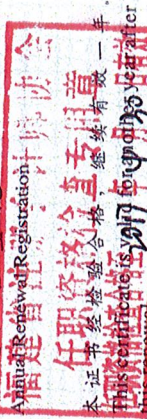 Annual Renewal Registration
福建省注册会计师协会
任职资格检查专用章
本证书经检验合格，继续有效一年。
This certificate is valid for another year after
this renewal.